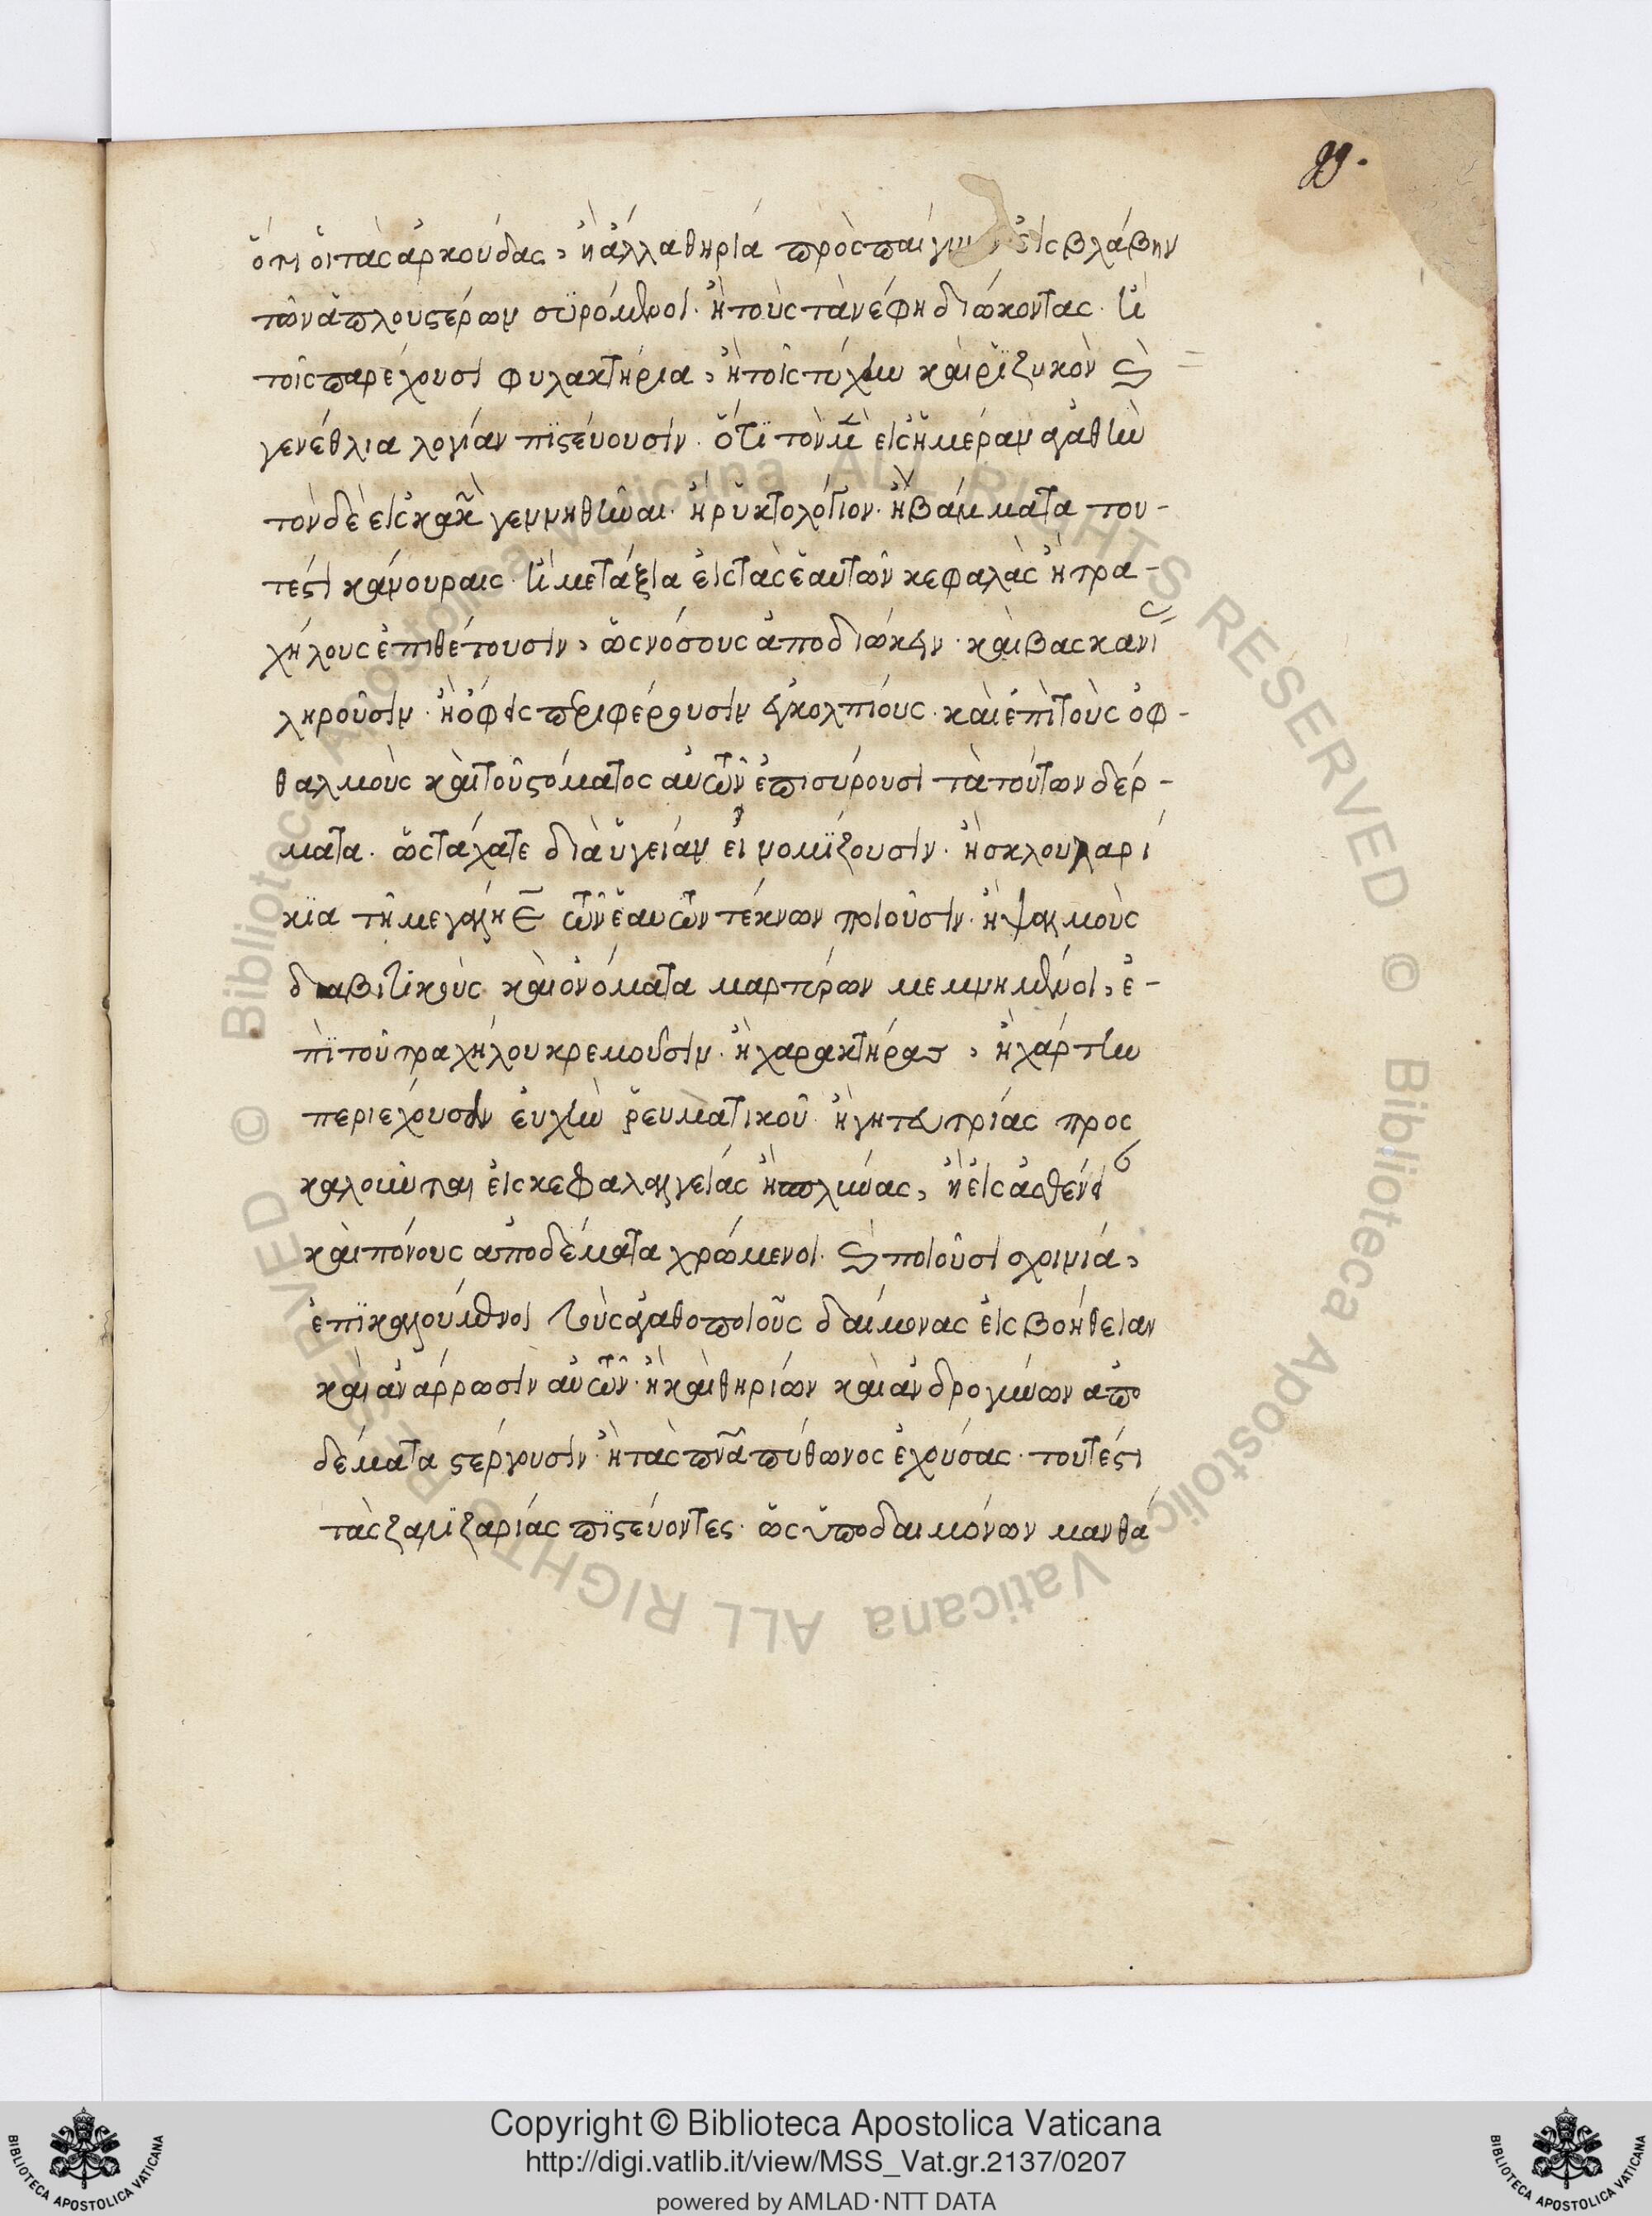 99.
ὅτι οἱ τὰς ἀρκούδας, ἢ ἄλλα θηρία πρὸς παίγνιον εἰς βλάβην
τῶν ἁπλουστέρων συρόμενοι. ἢ τοὺς τὰ νέφη διώκοντας. ἢ
τοῖς παρέχουσι φυλακτήρια, ἢ τοῖς τύχην καὶ ῥιζηκὸν καὶ
γενέθλια λογίαν πιστεύουσιν. ὅτι τὸν μὲν εἰς ἡμέραν ἀγαθὴν
τὸν δὲ εἰς κακὴν γεννηθῆναι. ἢ ρυκτολόγιον. ἢ βάμματα του-
τέστι κάνουραις. ἢ μετάξια εἰς τὰς ἑαυτῶν κεφαλὰς ἢ τρα-
χήλους ἐπιθέτουσιν, ὡς νόσους ἀποδιώκειν. καὶ βασκανί
ληροῦσιν. ἢ ὄφεις περιφέρουσιν ἐγκολπίους. καὶ ἐπὶ τοὺς ὀφ-
θαλμοὺς καὶ τοῦ στόματος αὐτῶν ἐπισύρουσι τὰ τούτων δέρ-
ματα. ὡς τάχατε διὰ ὑγείαν εἰ νομίζουσιν. ἢ σκλουλαρί
κια τῇ μεγάλῃ Ε τῶν ἑαυτῶν τέκνων ποιοῦσιν. ἢ ψαλμοὺς
δαβιτικοὺς καὶ ὀνόματα μαρτύρων μεμνημένοι, ἐ-
πὶ τοῦ τραχήλου κρεμοῦσιν. ἢ χαρακτήρας, ἢ χάρτην
περιέχουσαν εὐχὴν ῥευματικοῦ ἢ γητευτρίας προς
καλοῦνται εἰς κεφαλαλγείας ἢ πλινύας, ἢ εἰς ἀσθενεί
καὶ πόνους ἀποδέματα χρώμενοι. καὶ ποιοῦσι σχοινιά,
ἐπικαλούμενοι τοὺς ἀγαθοποιοῦς δαίμονας εἰς βοήθειαν
καὶ ἀνάρρωσιν αὐτῶν. ἢ καὶ θηρίων καὶ ἀνδρογύνων απο
δέματα στέργουσιν. ἢ τὰς πνα πύθωνος ἐχούσας. τουτέστι
τὰς ζαμιζαρίας πιστεύοντες. ὡς ὑπὸ δαιμόνων μανθά
© Biblioteca Apostolica Vaticana ALL RIGHTS RESERVED © Biblioteca Apostolica Vaticana ALL RIGHTS RESERVED
Copyright © Biblioteca Apostolica Vaticana
http://digi.vatlib.it/view/MSS_Vat.gr.2137/0207
powered by AMLAD·NTT DATA
BIBLIOTECA APOSTOLICA VATICANA
BIBLIOTECA APOSTOLICA VATICANA